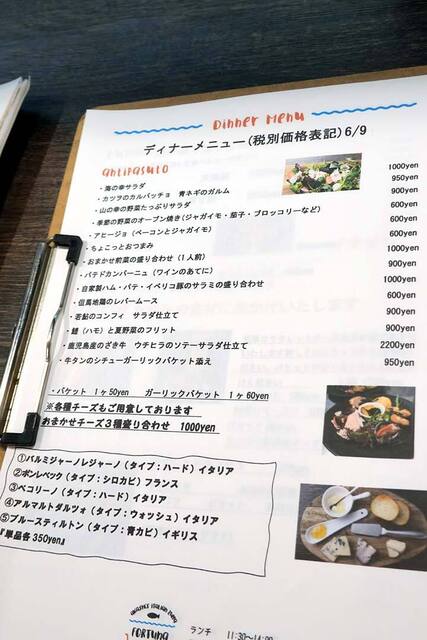 Dinner Menu
ディナーメニュー(税別価格表記)6/9
antipasuto
・海の幸サラダ 1000yen
・カツヲのカルパッチョ 青ネギのガルム 950yen
・山の幸の野菜たっぷりサラダ 900yen
・季節の野菜のオーブン焼き(ジャガイモ・茄子・ブロッコリーなど) 600yen
・アヒージョ(ベーコンとジャガイモ) 600yen
・ちょこっとおつまみ 600yen
・おまかせ前菜の盛り合わせ(1人前) 1000yen
・パテドカンパーニュ(ワインのあてに) 900yen
・自家製ハム・パテ・イベリコ豚のサラミの盛り合わせ 1000yen
・但馬地鶏のレバームース 600yen
・若鮎のコンフィ サラダ仕立て 900yen
・鱧(ハモ)と夏野菜のフリット 900yen
・鹿児島産のざき牛 ウチヒラのソテーサラダ仕立て 2200yen
・牛タンのシチューガーリックバケット添え 950yen
・バケット 1ヶ50yen ガーリックバケット 1ヶ60yen
※各種チーズもご用意しております
おまかせチーズ3種盛り合わせ 1000yen
①パルミジャーノレジャーノ(タイプ:ハード)イタリア
②ポンレベック(タイプ:シロカビ)フランス
③ペコリーノ(タイプ:ハード)イタリア
④アルマルトダルツォ(タイプ:ウォッシュ)イタリア
⑤ブルースティルトン(タイプ:青カビ)イギリス
『単品各350yen』
FORTUNA
ランチ 11:30~14:00